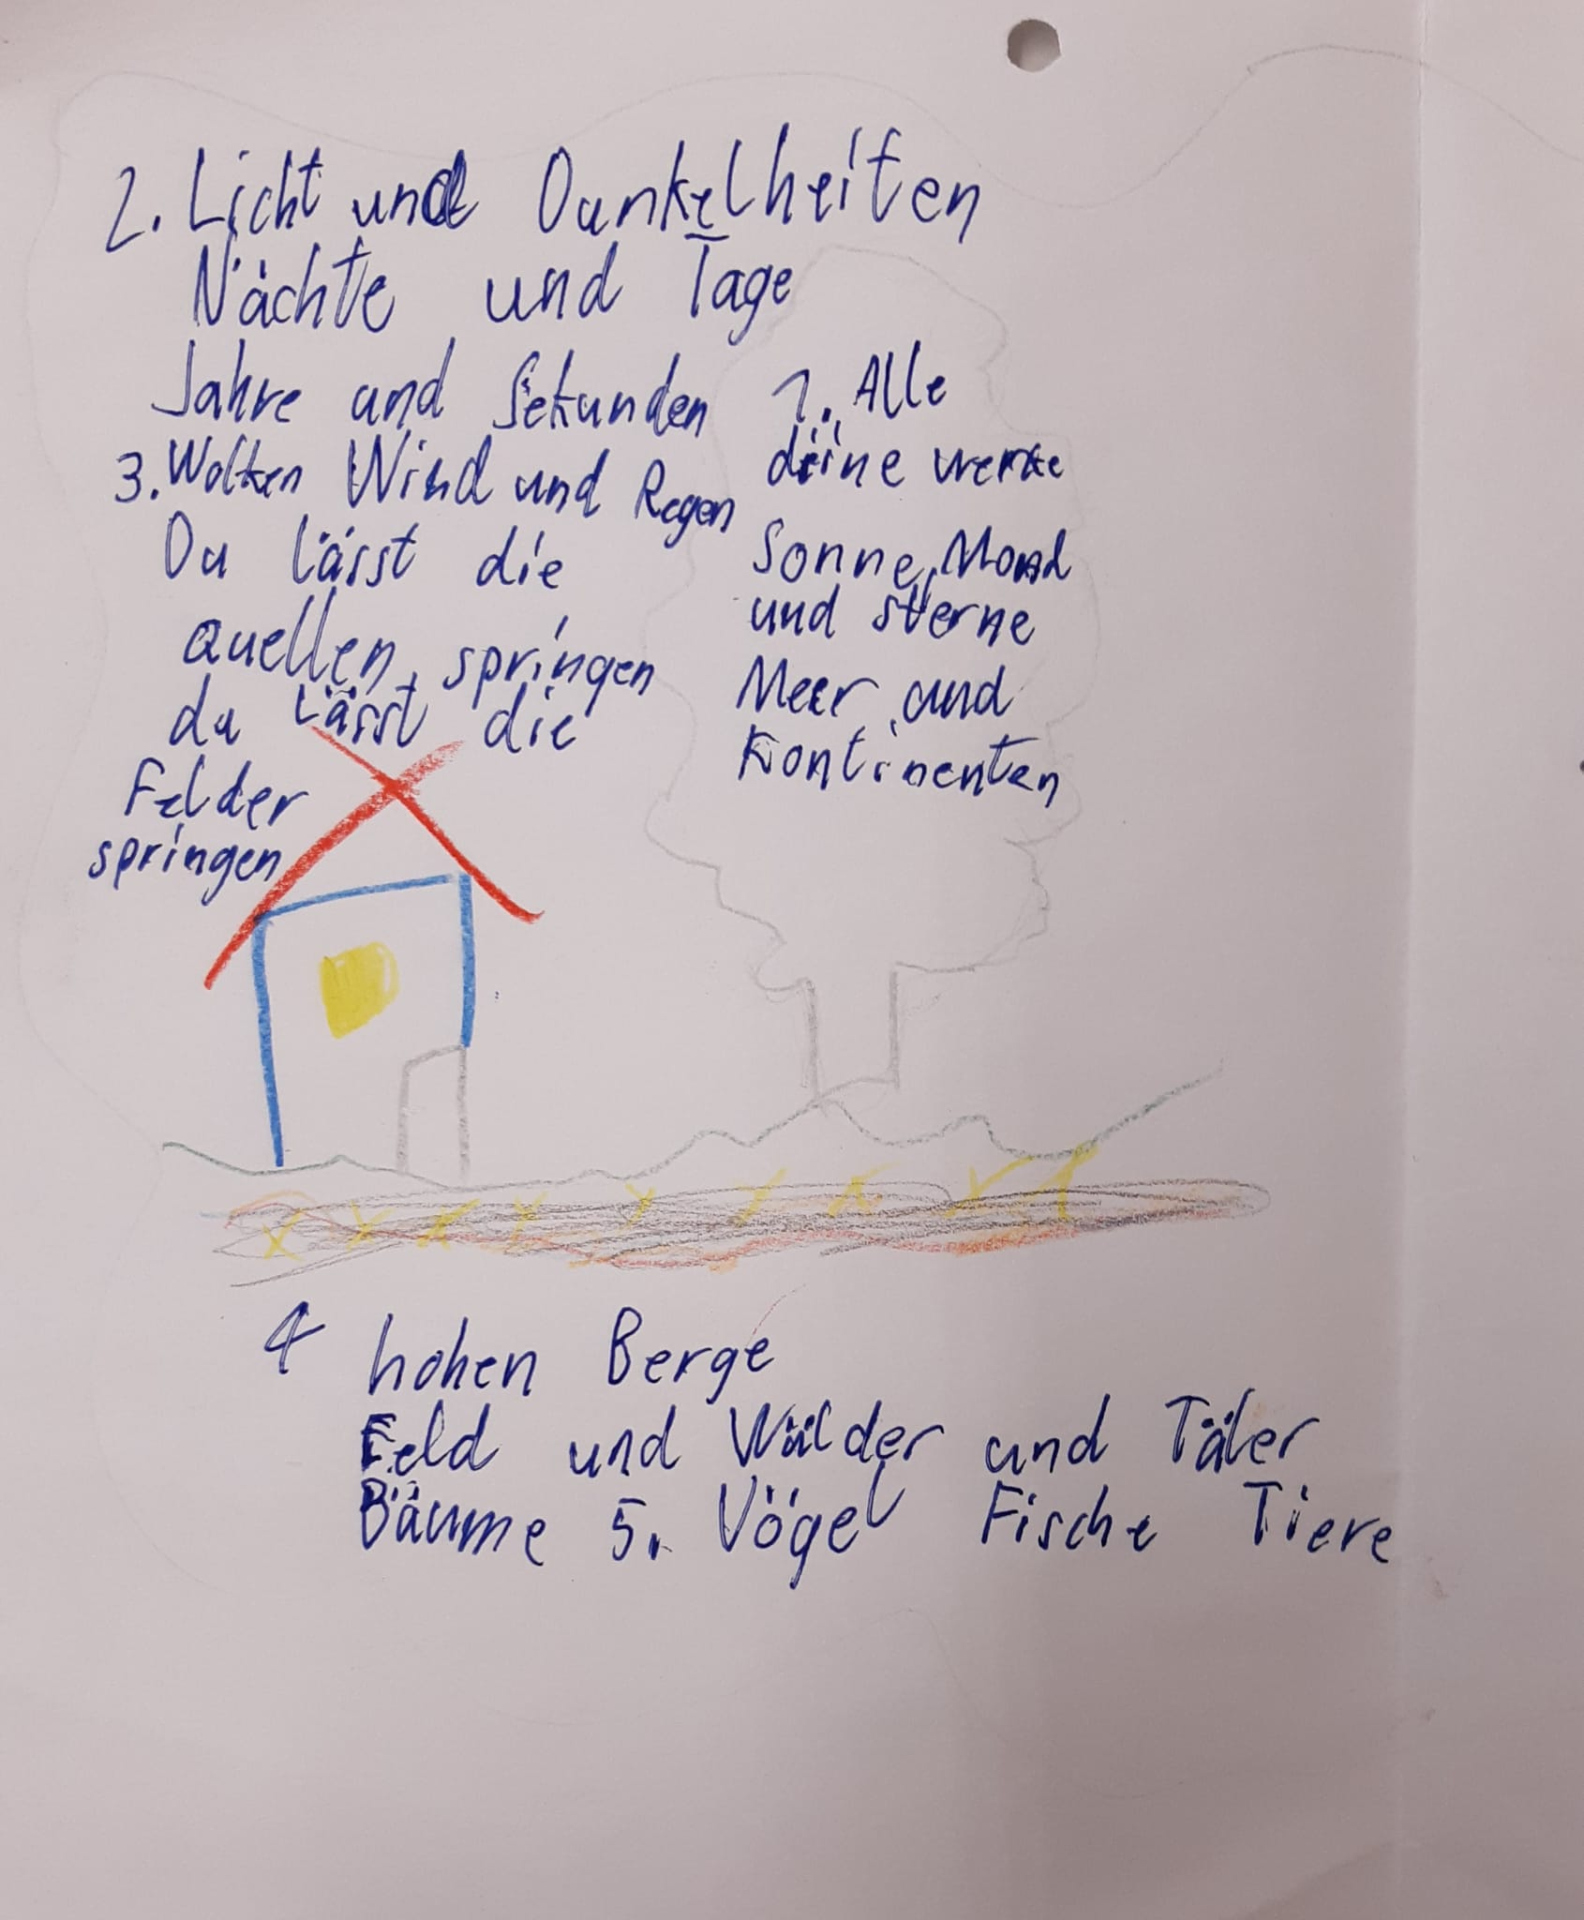 2. Licht und Dunkelheiten
Nächte und Tage
Jahre und Sekunden
3. Wolken Wind und Regen
Du lässt die
quellen springen
du lässt die
Felder
springen
1. Alle
deine werke
Sonne, Mond
und sterne
Meer und
Kontinenten
4 hohen Berge
Feld und Wälder und Täler
Bäume 5. Vögel Fische Tiere